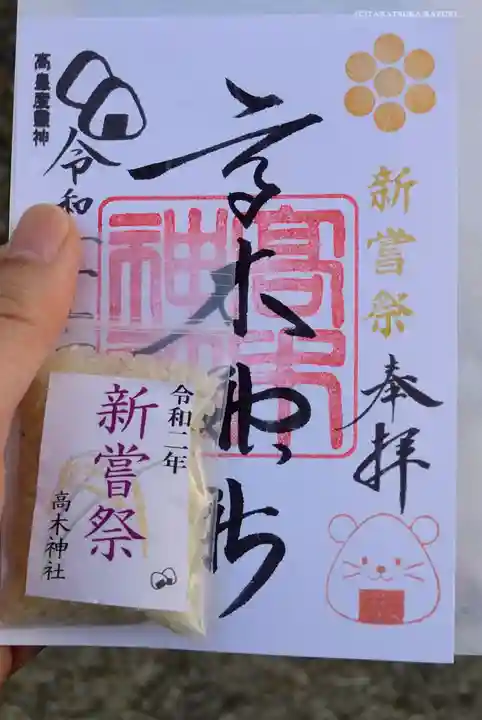 高皇産霊神
令和
高木神社
高木神社
新嘗祭
奉拝
令和二年
新嘗祭
高木神社